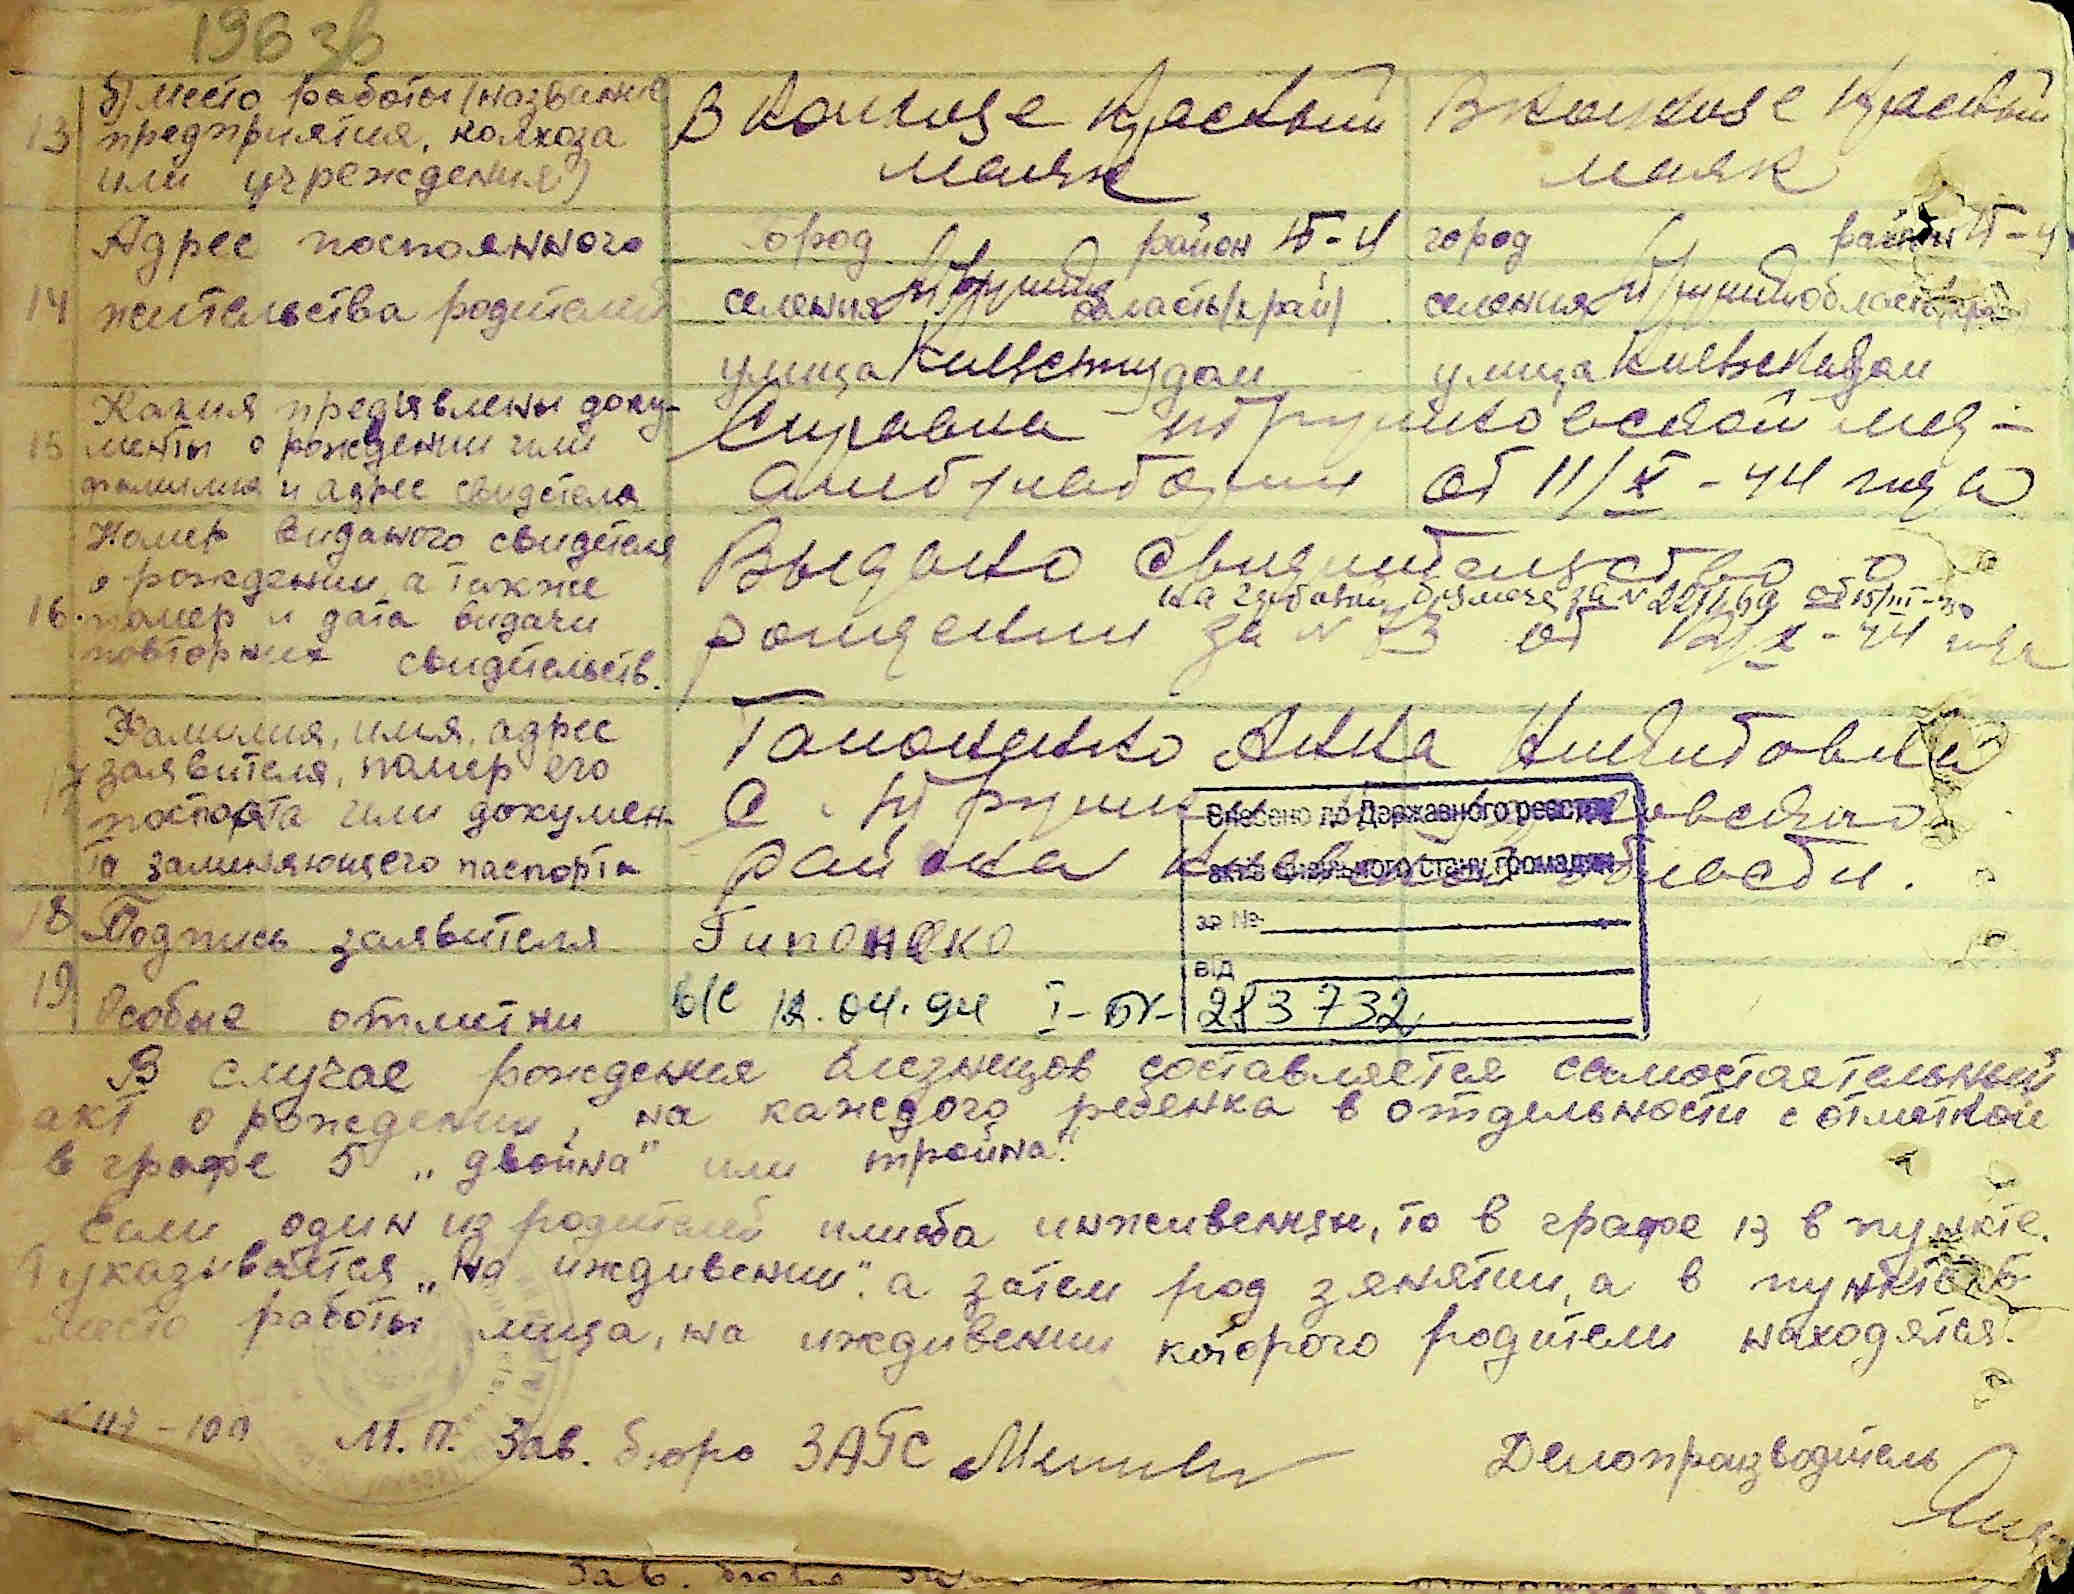 196 зв
13 б) место работы (название
предприятия, колхоза
или учреждения)
В колхозе Красный
маяк
В колхозе Красный
маяк
14 Адрес постоянного
жительства родителей
город район
селения область (край)
улица Киевская дом
город район
селения область (край)
улица Киевская дом
15 Какия предъявлены доку-
менты о рождении или
фамилия и адрес свидетеля
Справка
от 11/X - 44 года
16. Номер виданого свидетеля
о рождении а также
номер и дата видачи
повторния свидетельств.
Выдано свидетельство о
на гербовой бумаге за №
рождении за № 73 от 12/X - 44 года
17 Фамилия, имя, адрес
заявителя, номер его
паспорта или докумен-
та заменяющего паспорта
Анна Никитовна
с.
района области.
18 Подпись заявителя
19 Особые отметки
в/с 12.04.94 I-БК- 283732
Внесено до Державного реєстру
актів цивільного стану громадян
за №
від
В случае рождения близнецов составляется самостаетельный
акт о рождении, на каждого ребенка в отдельности с отметкой
в графе 5 „двойна" или тройна."
Если один из родителей либо иждивенцы, то в графе 13 в пункте
указывается „на иждивении". а затем род занятии, а в пункте б
место работы лица, на иждивении которого родители находятся.
М.П. Зав. бюро ЗАГС
Делопроизводитель
Зав. бюро